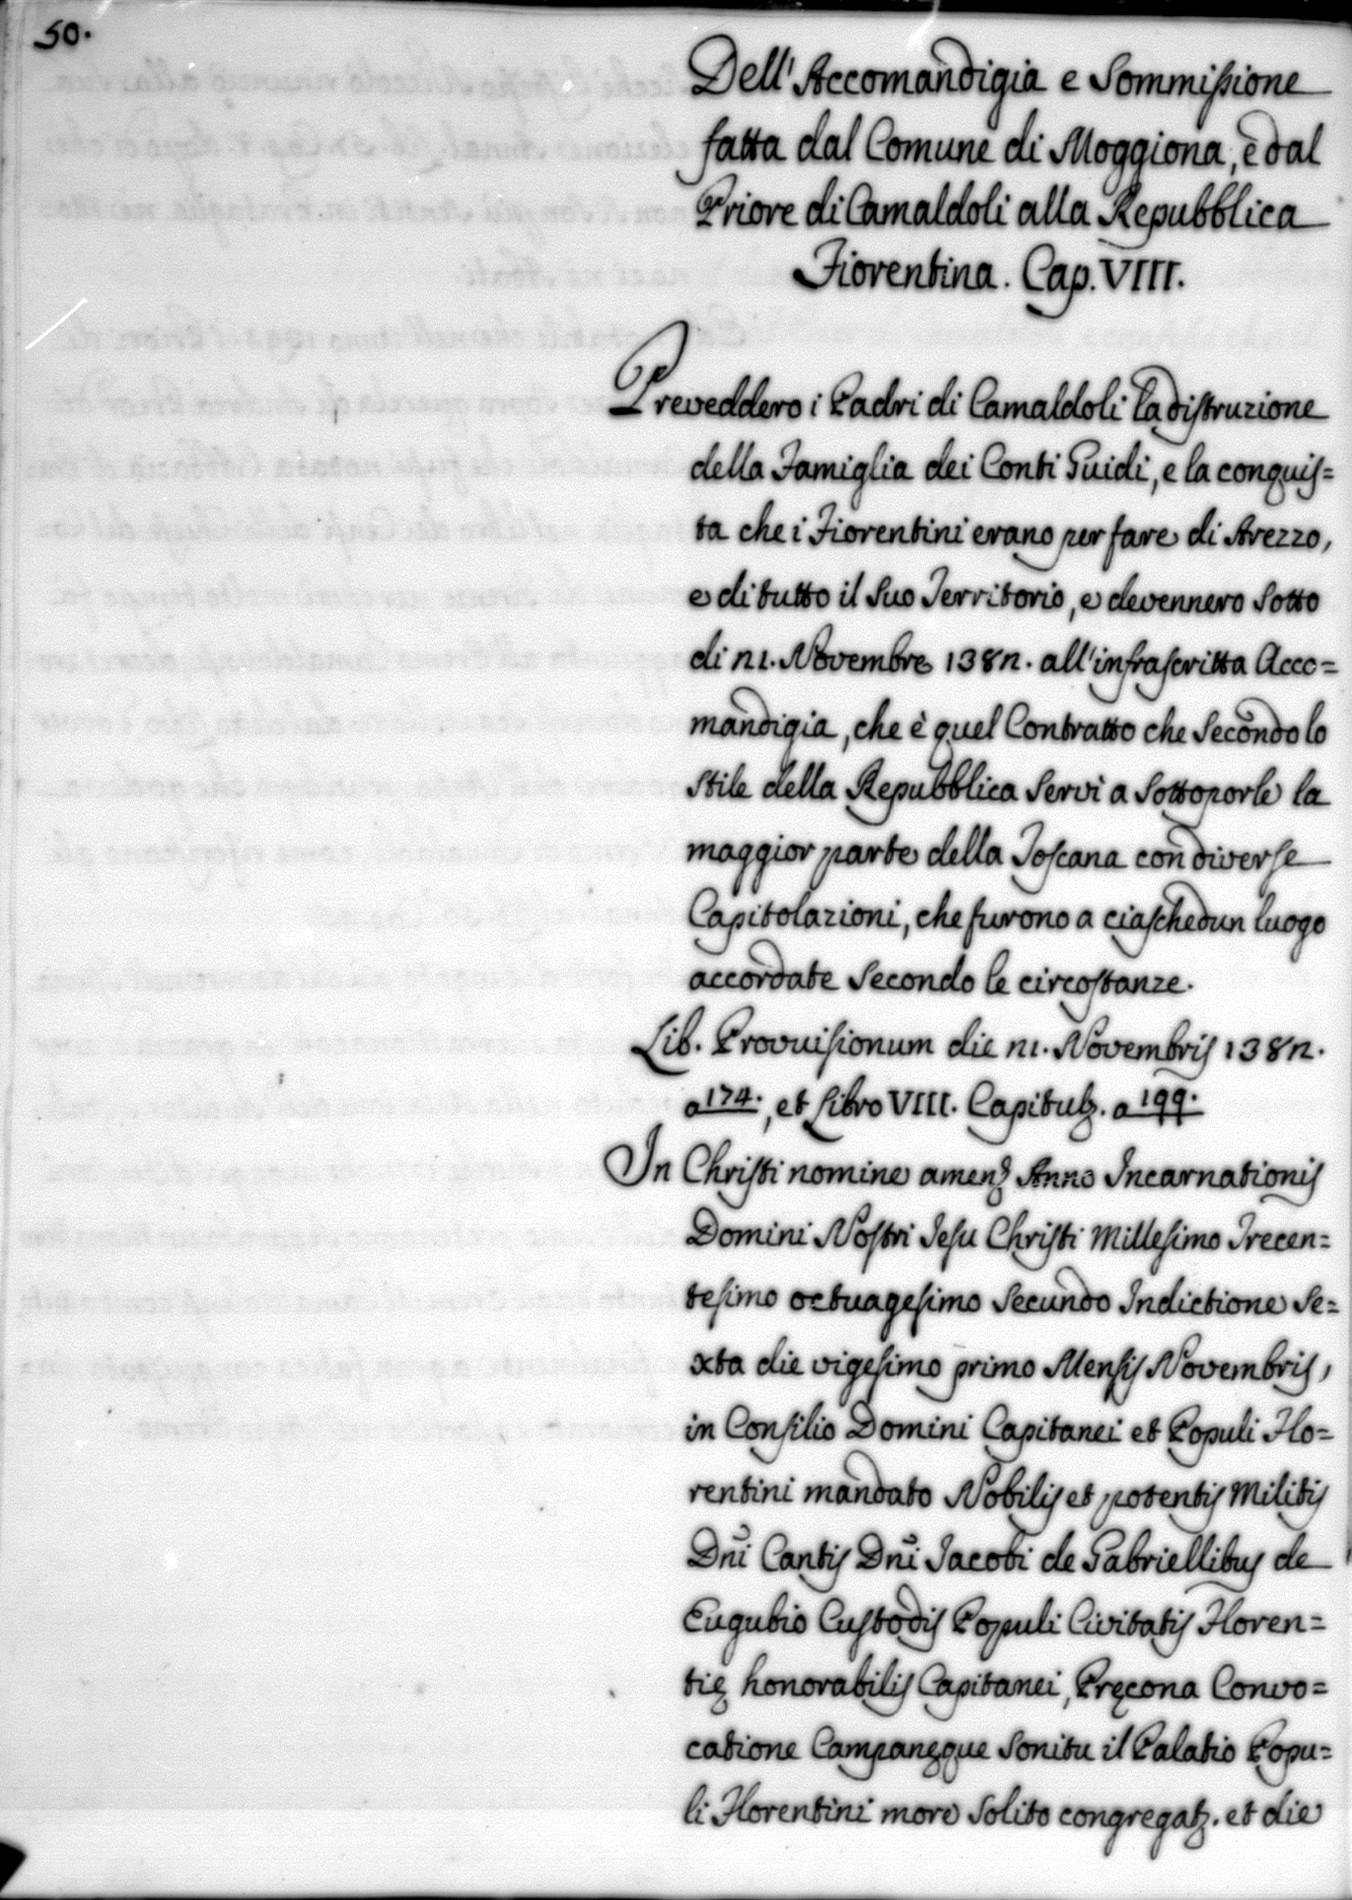 50.
Dell' Accomandigia e Sommissione
fatta dal Comune di Moggiona, e dal
Priore di Camaldoli alla Repubblica
Fiorentina. Cap. VIII.
Preveddero i Padri di Camaldoli la distruzione
della Famiglia dei Conti Guidi, e la conquis=
ta che i Fiorentini erano per fare di Arezzo,
e di tutto il suo Territorio, e devennero sotto
di 21. Novembre 1382. all'infrascritta Acco=
mandigia, che è quel Contratto che secondo lo
stile della Repubblica servì a sottoporle la
maggior parte della Toscana con diverse
Capitolazioni, che furono a ciaschedun luogo
accordate secondo le circostanze.
Lib. Provvisionum die 21. Novembris 1382.
a 174., et Libro VIII. Capitulę. a 199.
In Christi nomine amenę Anno Incarnationis
Domini Nostri Jesu Christi Millesimo Trecen=
tesimo octuagesimo secundo Indictione se=
xta die vigesimo primo Mensis Novembris,
in Consilio Domini Capitanei et Populi Flo=
rentini mandato Nobilis et potentis Militis
Dnĩ Cantis Dnĩ Jacobi de Gabriellibus de
Eugubio Custodis Populi Civitatis Floren=
tię honorabilis Capitanei, Pręcona Convo=
catione Campanęque sonitu il Palatio Popu=
li Florentini more solito congregatę. et die